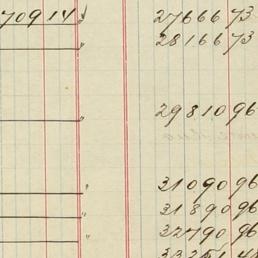 70914 √ 27666 73
" 28166 73
" 29810 96
" 31090 96
" 31890 96
" 32790 96